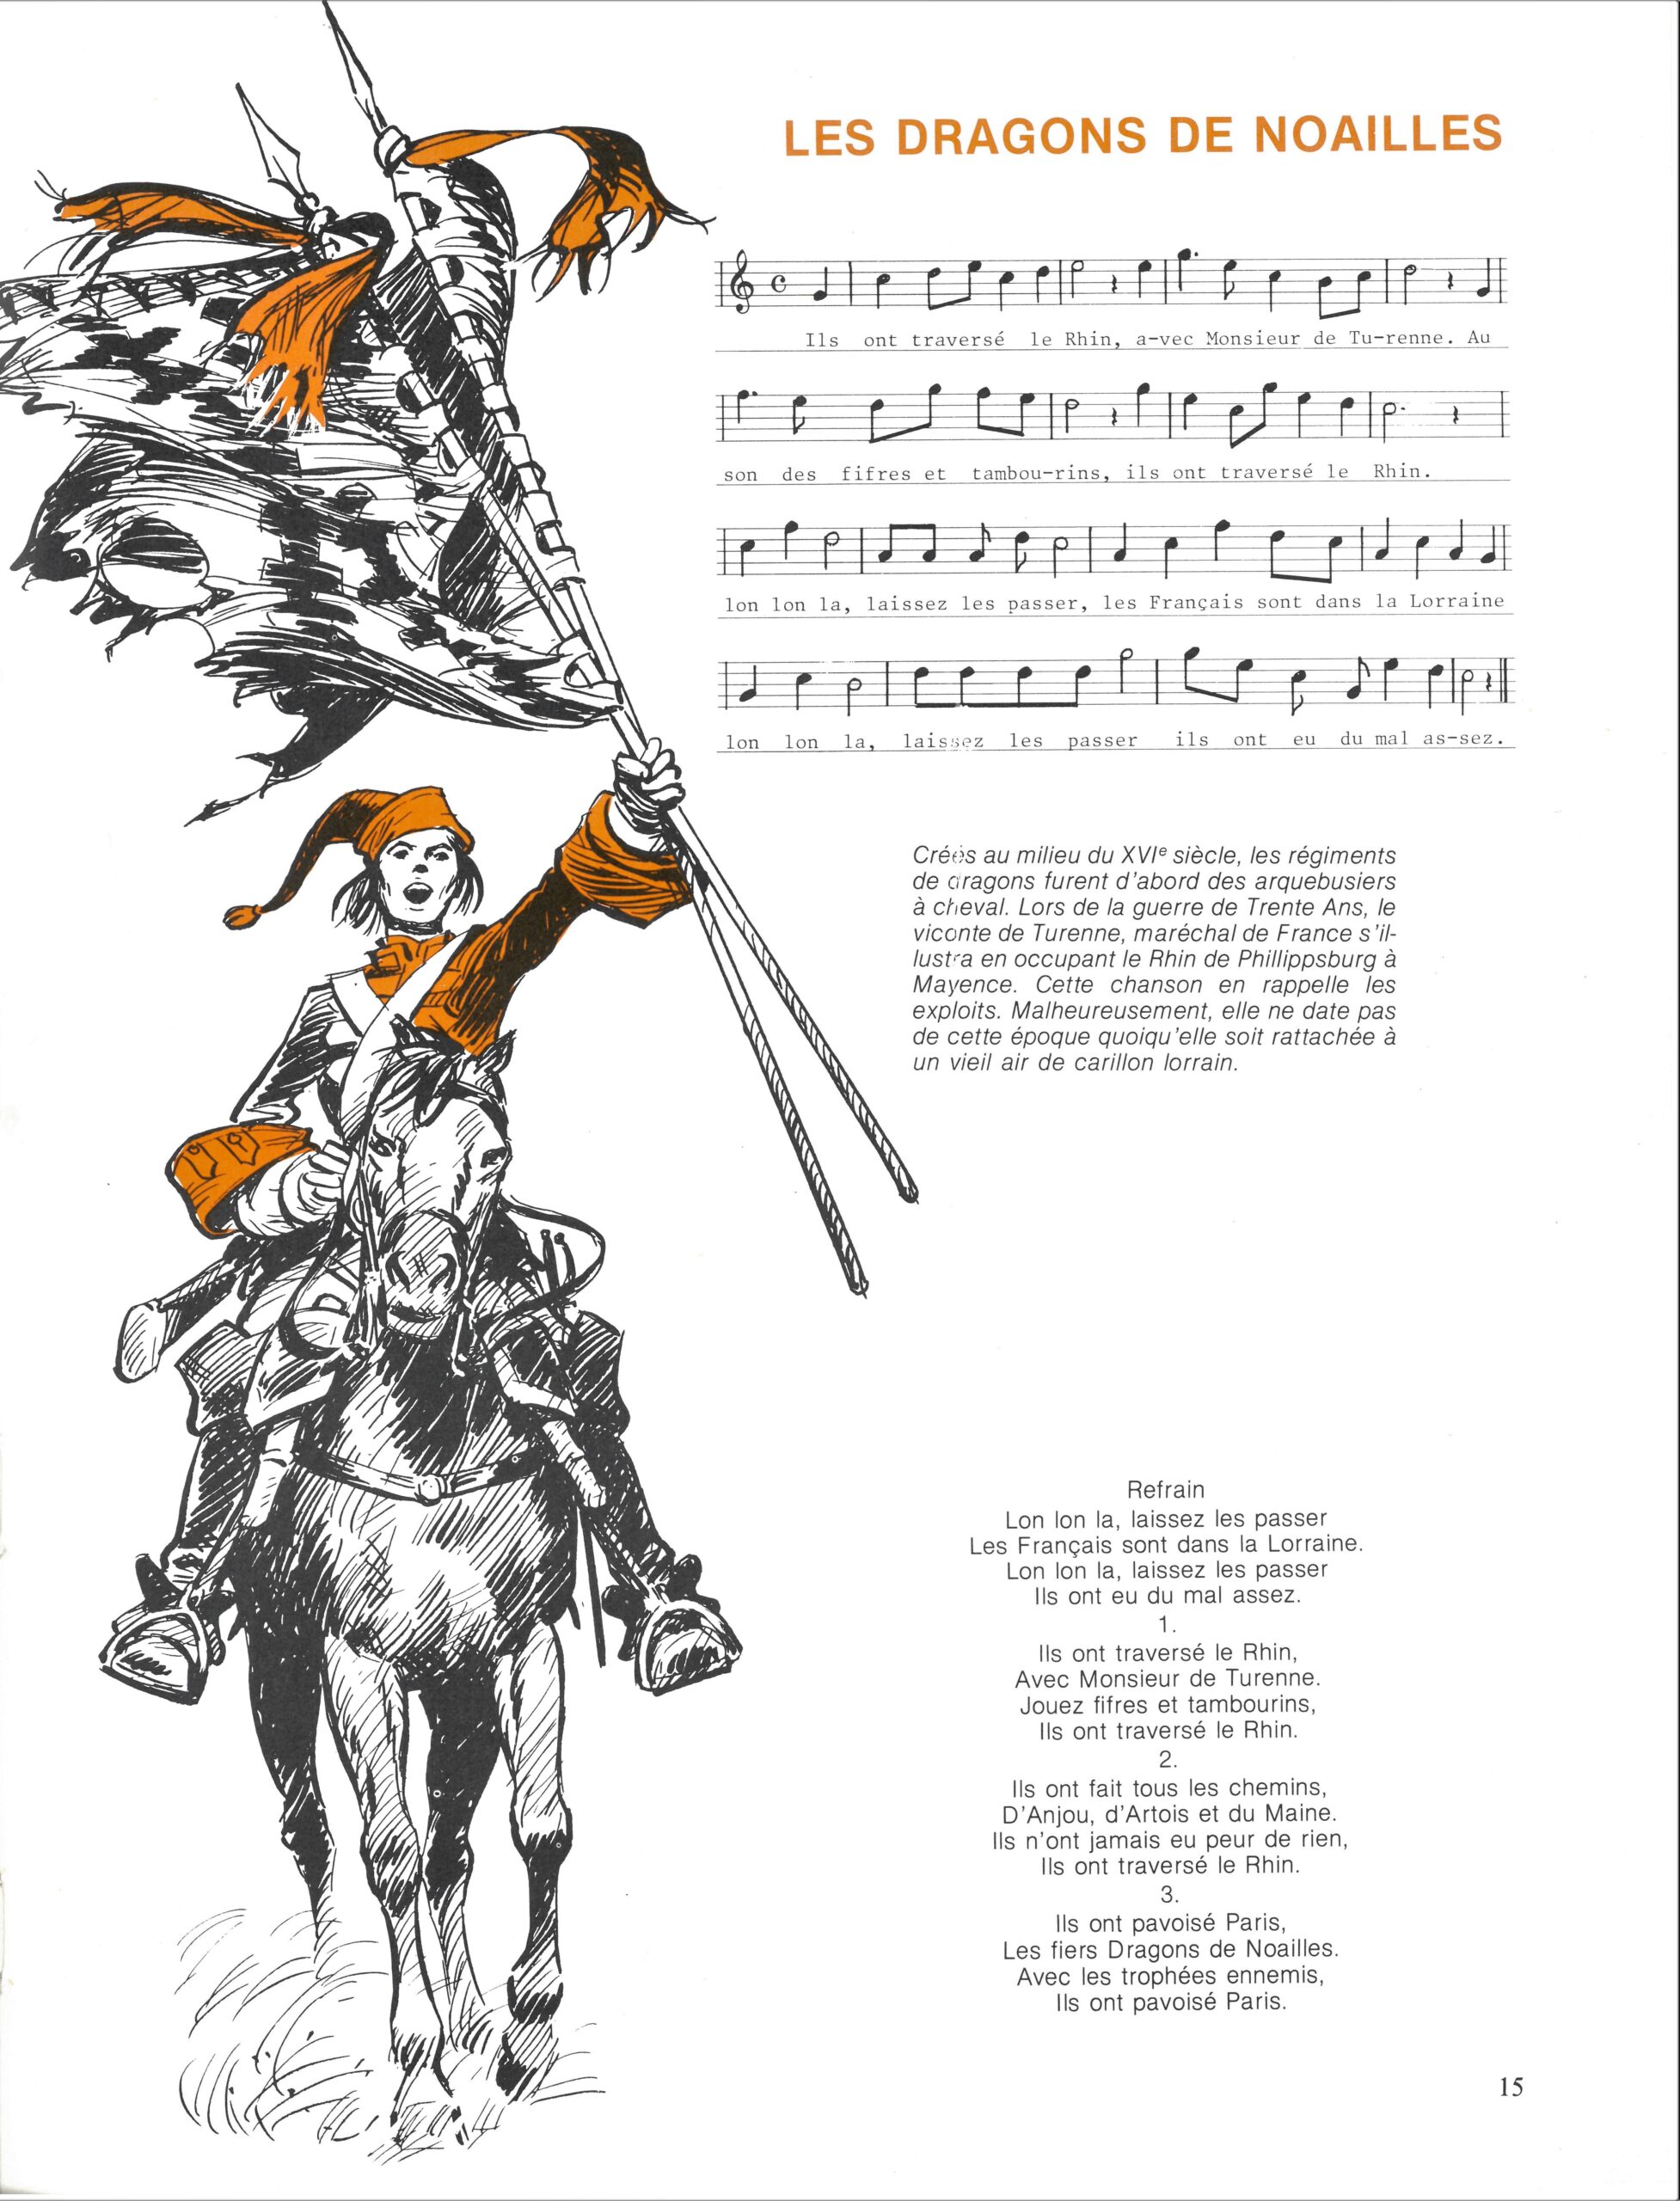 LES DRAGONS DE NOAILLES
Ils ont traversé le Rhin, a-vec Monsieur de Tu-renne. Au
son des fifres et tambou-rins, ils ont traversé le Rhin.
lon lon la, laissez les passer, les Français sont dans la Lorraine
lon lon la, laissez les passer ils ont eu du mal as-sez.
Créés au milieu du XVIe siècle, les régiments
de dragons furent d'abord des arquebusiers
à cheval. Lors de la guerre de Trente Ans, le
viconte de Turenne, maréchal de France s'il-
lustra en occupant le Rhin de Phillippsburg à
Mayence. Cette chanson en rappelle les
exploits. Malheureusement, elle ne date pas
de cette époque quoiqu'elle soit rattachée à
un vieil air de carillon lorrain.
Refrain
Lon lon la, laissez les passer
Les Français sont dans la Lorraine.
Lon lon la, laissez les passer
Ils ont eu du mal assez.
1.
Ils ont traversé le Rhin,
Avec Monsieur de Turenne.
Jouez fifres et tambourins,
Ils ont traversé le Rhin.
2.
Ils ont fait tous les chemins,
D'Anjou, d'Artois et du Maine.
Ils n'ont jamais eu peur de rien,
Ils ont traversé le Rhin.
3.
Ils ont pavoisé Paris,
Les fiers Dragons de Noailles.
Avec les trophées ennemis,
Ils ont pavoisé Paris.
15